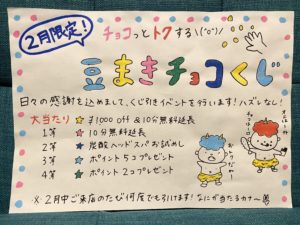 2月限定!
チョコっとトクする\(^o^)/
豆まきチョコくじ
日々の感謝を込めまして、くじ引きイベントを行います!ハズレなし!
大当たり ☆ ¥1000 off & 10分無料延長
1等 ☆ 10分無料延長
2等 ☆ 炭酸ヘッドスパお試し
3等 ☆ ポイント5コプレゼント
4等 ☆ ポイント2コプレゼント
おトクだねー
※2月中ご来店のたび何度でも引けます!なにが当たるカナ〜